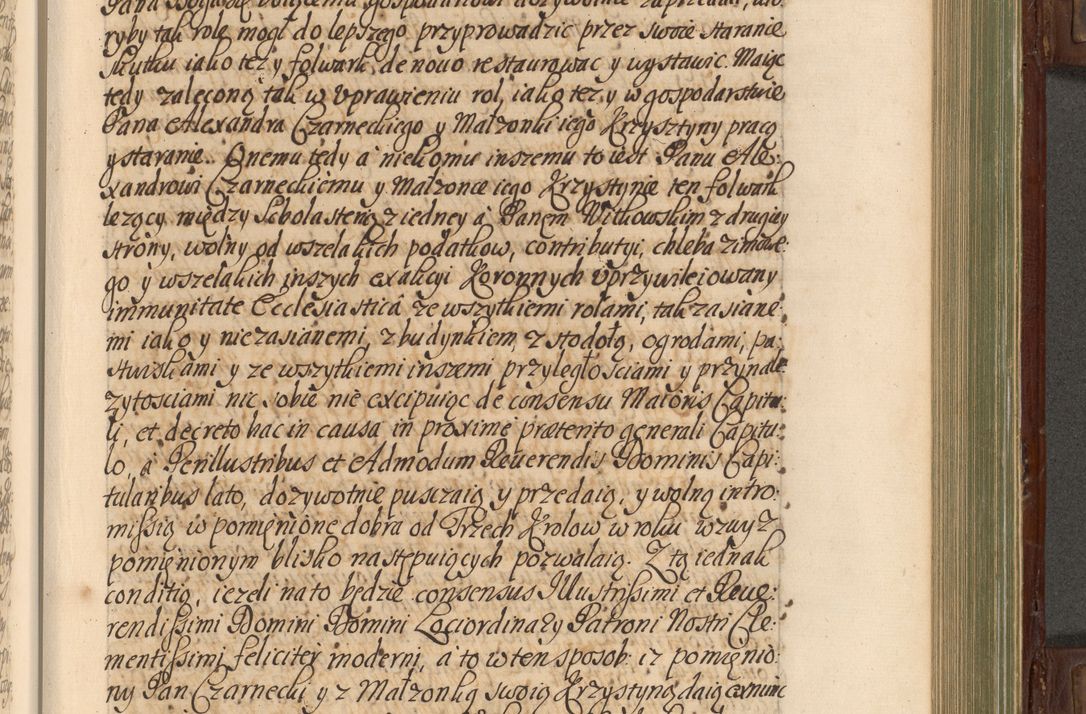 ryby tak rolę mogł do lepszego przyprowadzic przez swoie staranie
skutku iako tez y folwark de nouo restaurowac y wystawic. Maiąc
tedy zaleconą tak w vprawieniu rol, iako tez y w gospodarstwie
Pana Alexandra Czarneckiego y Małzonki iego Krzysztyny pracą
y staranie. Onemu tedy a nieikomu inszemu to iest Panu Ale:
xandrowi Czarneckiemu y Małzonce iego Krzystynie ten folwark
lezący między Scholasterią z iedney a Panem Witkowskim z drugiey
strony, wolny od wszelakich podatkow, contributyi, chleba zimowe:
go y wszelakich inszych exakcyi Koronnych vprzywileiowany
immunitate Ecclesiastica ze wszytkiemi rolami, tak zasiane:
mi iako y niezasianemi, z budynkiem, z stodołą, ogrodami, pa:
stwiskami y ze wszytkiemi inszemi przyległosciami y przynale:
zytosciami nic sobie nie excipuiąc de consensu Maioris Capitu:
li, et decreto hac in causa in proxime prætento generali Capitu:
lo, a Perillustribus et Admodum Reuerendis Dominis Capi:
tularibus lato, dozywotnie pusczaią y przedaią, y wolną intro:
missią w pomienione dobra od Trzech Krolow w roku wzwyz
pomienionym blisko następuiących pozwalaią. Z tą iednak
conditią, iezeli na to będzie consensus Illustrissimi et Reue:
rendissimi Domini Domini Loci ordinary Patroni Nostri Cle:
mentissimi feliciter moderni, a to w ten sposob: iz pomienio:
ny Pan Czarnecki y z Małzonką swoią Krzystyną daią ex nunc